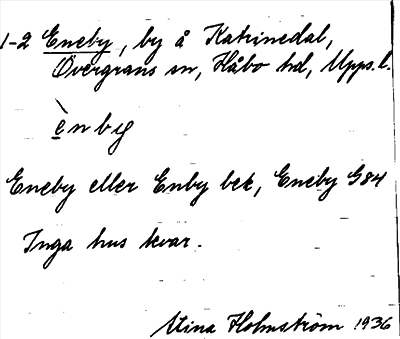 1-2 Eneby, by å Katrinedal,
Övergrans sn, Håbo hd, Upps. l.
ènbÿ
Eneby eller Enby bek, Eneby G84
Inga hus kvar.
Mina Holmström 1936